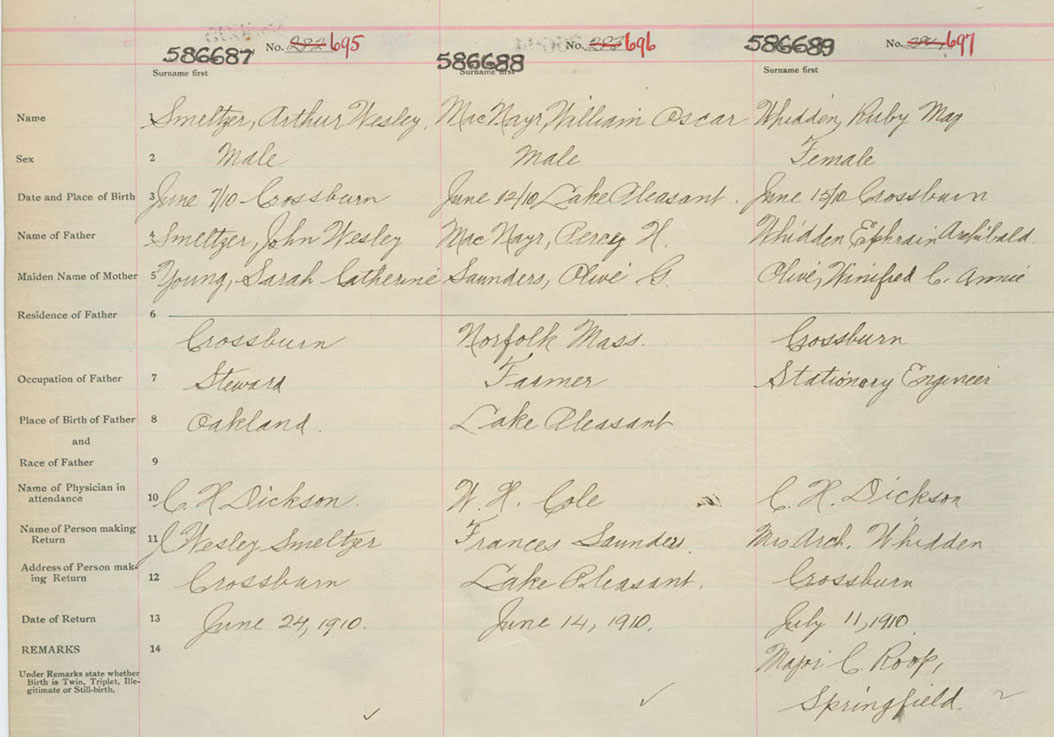 586687 No. 282 695 586688 No. 283 696 586689 No. 284 697
Surname first Surname first Surname first
Name 1 Smeltzer, Arthur Wesley. MacNayr, William Oscar Whidden, Ruby May
Sex 2 Male Male Female
Date and Place of Birth 3 June 7/10 Crossburn June 12/10 Lake Pleasant. June 15/10 Crossburn
Name of Father 4 Smeltzer, John Wesley MacNayr, Percy H. Whidden Ephraim Archibald
Maiden Name of Mother 5 Young, Sarah Catherine Saunders, Olive G. Olive, Winifred C. Annie
Residence of Father 6
Crossburn Norfolk Mass. Crossburn
Occupation of Father 7 Steward Farmer Stationary Engineer
Place of Birth of Father 8 Oakland. Lake Pleasant
and
Race of Father 9
Name of Physician in
attendance 10 C. H. Dickson. W. H. Cole C. H. Dickson
Name of Person making
Return 11 J Wesley Smeltzer Frances Saunders. Mrs Arch. Whidden
Address of Person mak-
ing Return 12 Crossburn Lake Pleasant. Crossburn
Date of Return 13 June 24, 1910. June 14, 1910. July 11, 1910
REMARKS 14
Major C. Roop,
Under Remarks state whether
Birth is Twin, Triplet, Ille-
gitimate or Still-birth.
Springfield.